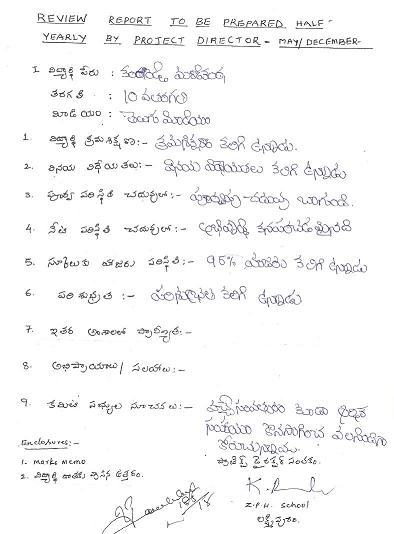 REVIEW REPORT TO BE PREPARED HALF-
YEARLY BY PROJECT DIRECTOR - MAY/DECEMBER-
I. విద్యార్థి పేరు :
తరగతి : 10 వ తరగతి
మీడియం : తెలుగు మీడియం
1. విద్యార్థి క్రమశిక్షణ :- క్రమశిక్షణ కలిగి ఉన్నాడు.
2. వినయ విధేయతలు :- వినయ విధేయతలు కలిగి ఉన్నాడు
3. పూర్వ పరిస్థితి చదువులో :- చదువు బాగుంది.
4. నేటి పరిస్థితి చదువులో :- అభివృద్ధి
5. స్కూలుకు హాజరు పరిస్థితి :- 95% హాజరు కలిగి ఉన్నాడు
6. పరిశుభ్రత :- పరిశుభ్రత కలిగి ఉన్నాడు
7. ఇతర అంశాలలో ప్రావీణ్యత :-
8. అభిప్రాయాలు/ సలహాలు :-
9. కమిటి సభ్యుల సూచనలు :- కూడా
సహాయం కొనసాగించ వలసిందిగా
కోరుచున్నాము.
Enclosures :-
ప్రాజెక్ట్ డైరెక్టర్ సంతకం.
1. Marks Memo
2. విద్యార్థి
Z.P.H. School
లక్ష్మీపురం.